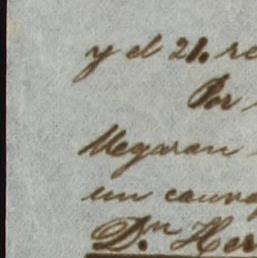 y el 21. re
Por
llegaran
un
Dn. Her